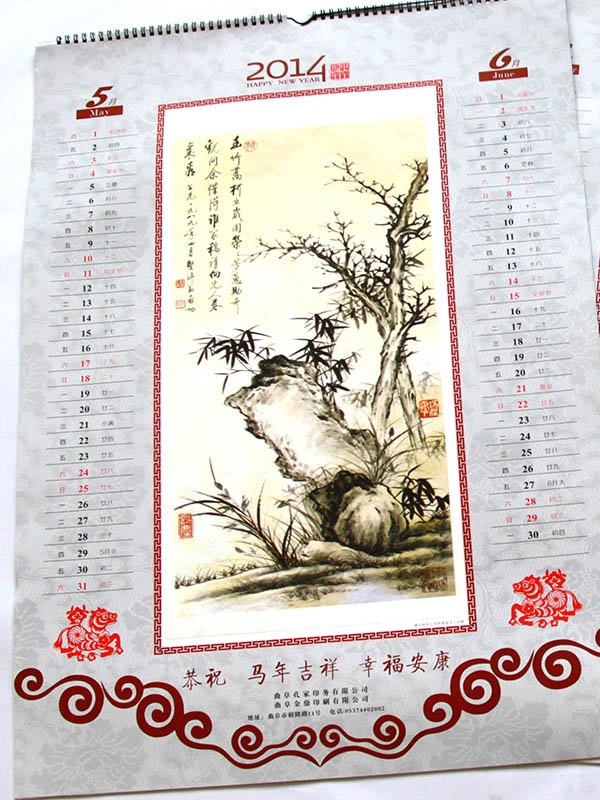 2014
HAPPY NEW YEAR
5月
May
6月
June
四 1 劳动节
五 2 初四
六 3 初五
日 4 青年节
5 立夏
二 6 初八
三 7 初九
四 8 初十
五 9 十一
六 10 十二
日 11 母亲节
一 12 十四
二 13 十五
三 14 十六
四 15 十七
五 16 十八
六 17 十九
日 18 二十
一 19 廿一
二 20 廿二
三 21 小满
四 22 廿四
五 23 廿五
六 24 廿六
日 25 廿七
一 26 廿八
二 27 廿九
三 28 三十
四 29 5月小
五 30 初二
六 31 初三
日 1 儿童节
一 2 端午节
二 3 初六
三 4 初七
四 5 初八
五 6 芒种
六 7 初十
日 8 十一
一 9 十二
二 10 十三
三 11 十四
四 12 十五
五 13 十六
六 14 十七
日 15 父亲节
一 16 十九
二 17 二十
三 18 廿一
四 19 廿二
五 20 廿三
六 21 夏至
日 22 廿五
一 23 廿六
二 24 廿七
三 25 廿八
四 26 廿九
五 27 6月大
六 28 初二
日 29 初三
一 30 初四
恭祝 马年吉祥 幸福安康
曲阜孔家印务有限公司
曲阜金鼎印刷有限公司
地址：曲阜市裕隆路11号 电话：05374402002